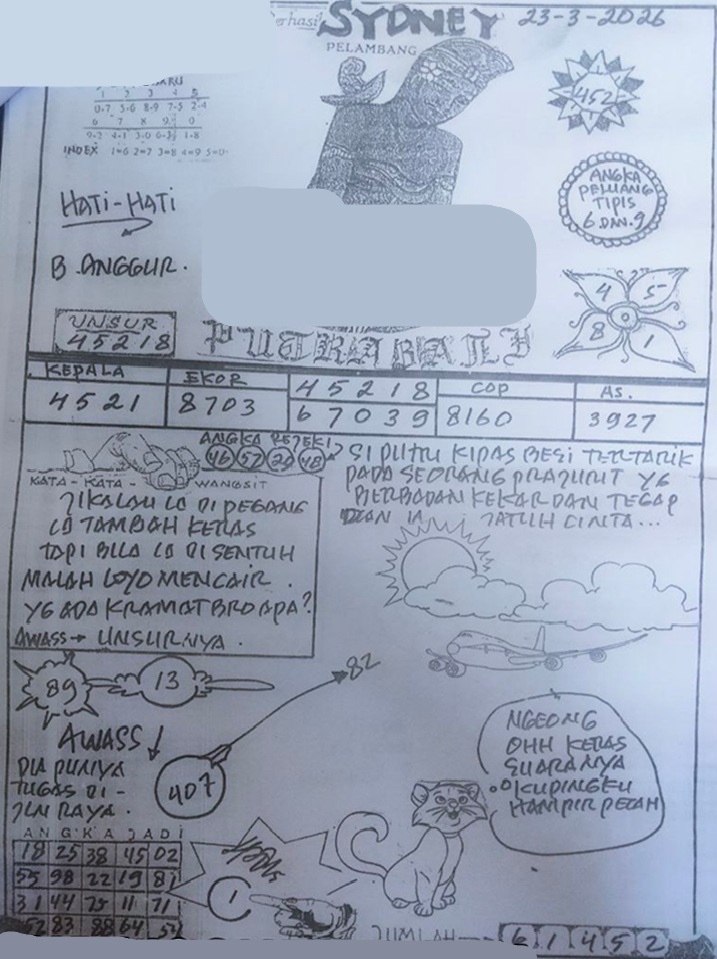 SYDNEY 23-3-2026
PELAMBANG
1 2 3 4 5
0-7 5-6 8-9 7-5 2-4
6 7 8 9 0
9-2 4-1 3-0 6-3 1-8
INDEX 1=6 2=7 3=8 4=9 5=0
452
HATI-HATI
ANGKA
PELUANG
TIPIS
6 DAN 9
B ANGGUR.
4 5
8 1
UNSUR
45218
PUTRA BALI
KEPALA EKOR 45218 COP AS.
4521 8703 67039 8160 3927
ANGKA REJEKI
46 57 24 48
KATA-KATA-WANGSIT
JIKALAU LO DI PEGANG
LO TAMBAH KERAS
TAPI BILA LO DI SENTUH
MALAH LOYO MENCAIR.
YG ADA KRAMAT BRO APA?
AWASS→ UNSURNYA.
SI PUTRI KIPAS BESI TERTARIK
PADA SEORANG PRAJURIT YG
BERBADAN KEKAR DAN TEGAP
DAN JATUH CINTA...
89 13
82
AWASS
DIA PUNYA
TUGAS DI-
JLN RAYA.
407
NGEONG
OHH KERAS
SUARANYA
KUPINGKU
HAMPIR PECAH
ANGKA JADI
18 25 38 45 02
55 98 22 19 81
31 44 75 11 71
52 83 88 64
1
JUMLAH→ 61452